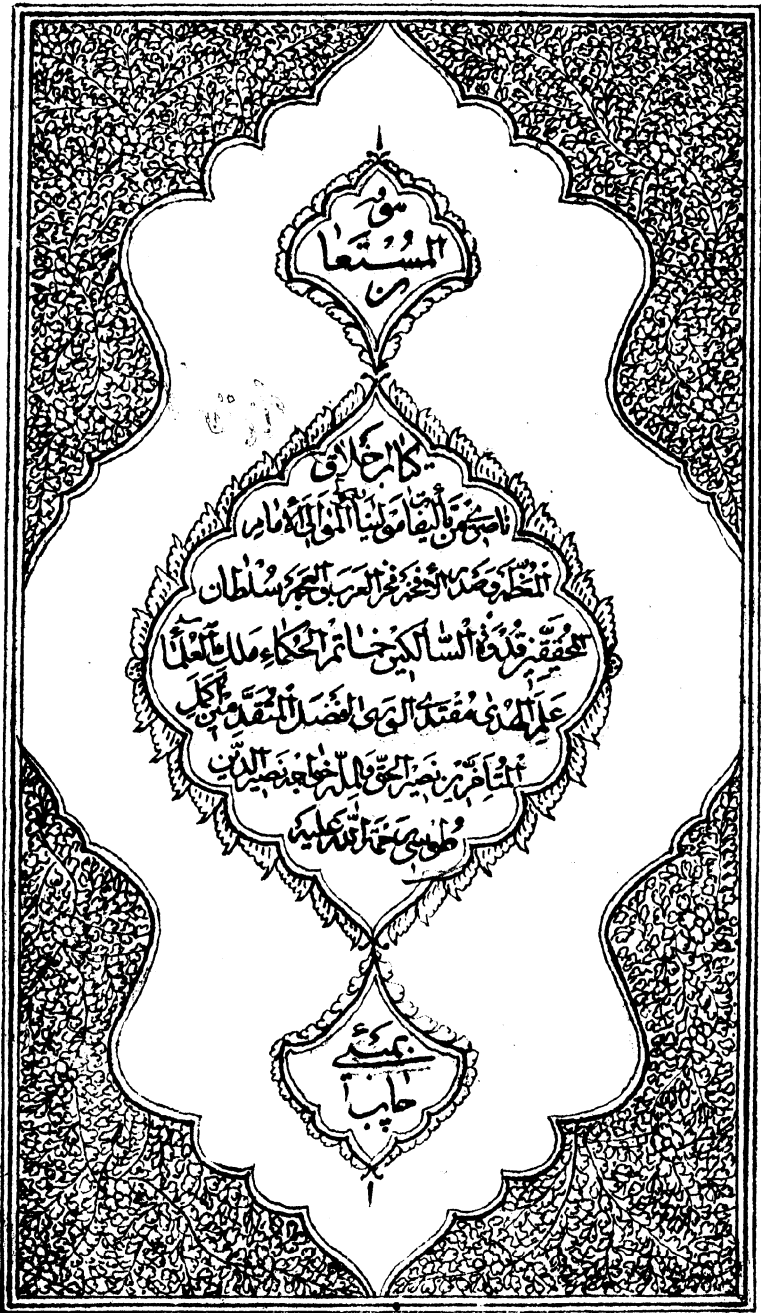 هو
المستعان
كتاب اخلاق
ناصری من تأليفات مولينا المولى الامام
المعظم و صدر الأفخم فخر العرب و العجم سلطان
المحققين قدوة السالكين خاتم الحكماء ملك العلماء
علم الهدى مقتدى الورى افضل المتقدمين اكمل
المتأخرين نصير الحق والملة خواجه نصير الدين
طوسی رحمة الله عليه
بمبئی
چاپ